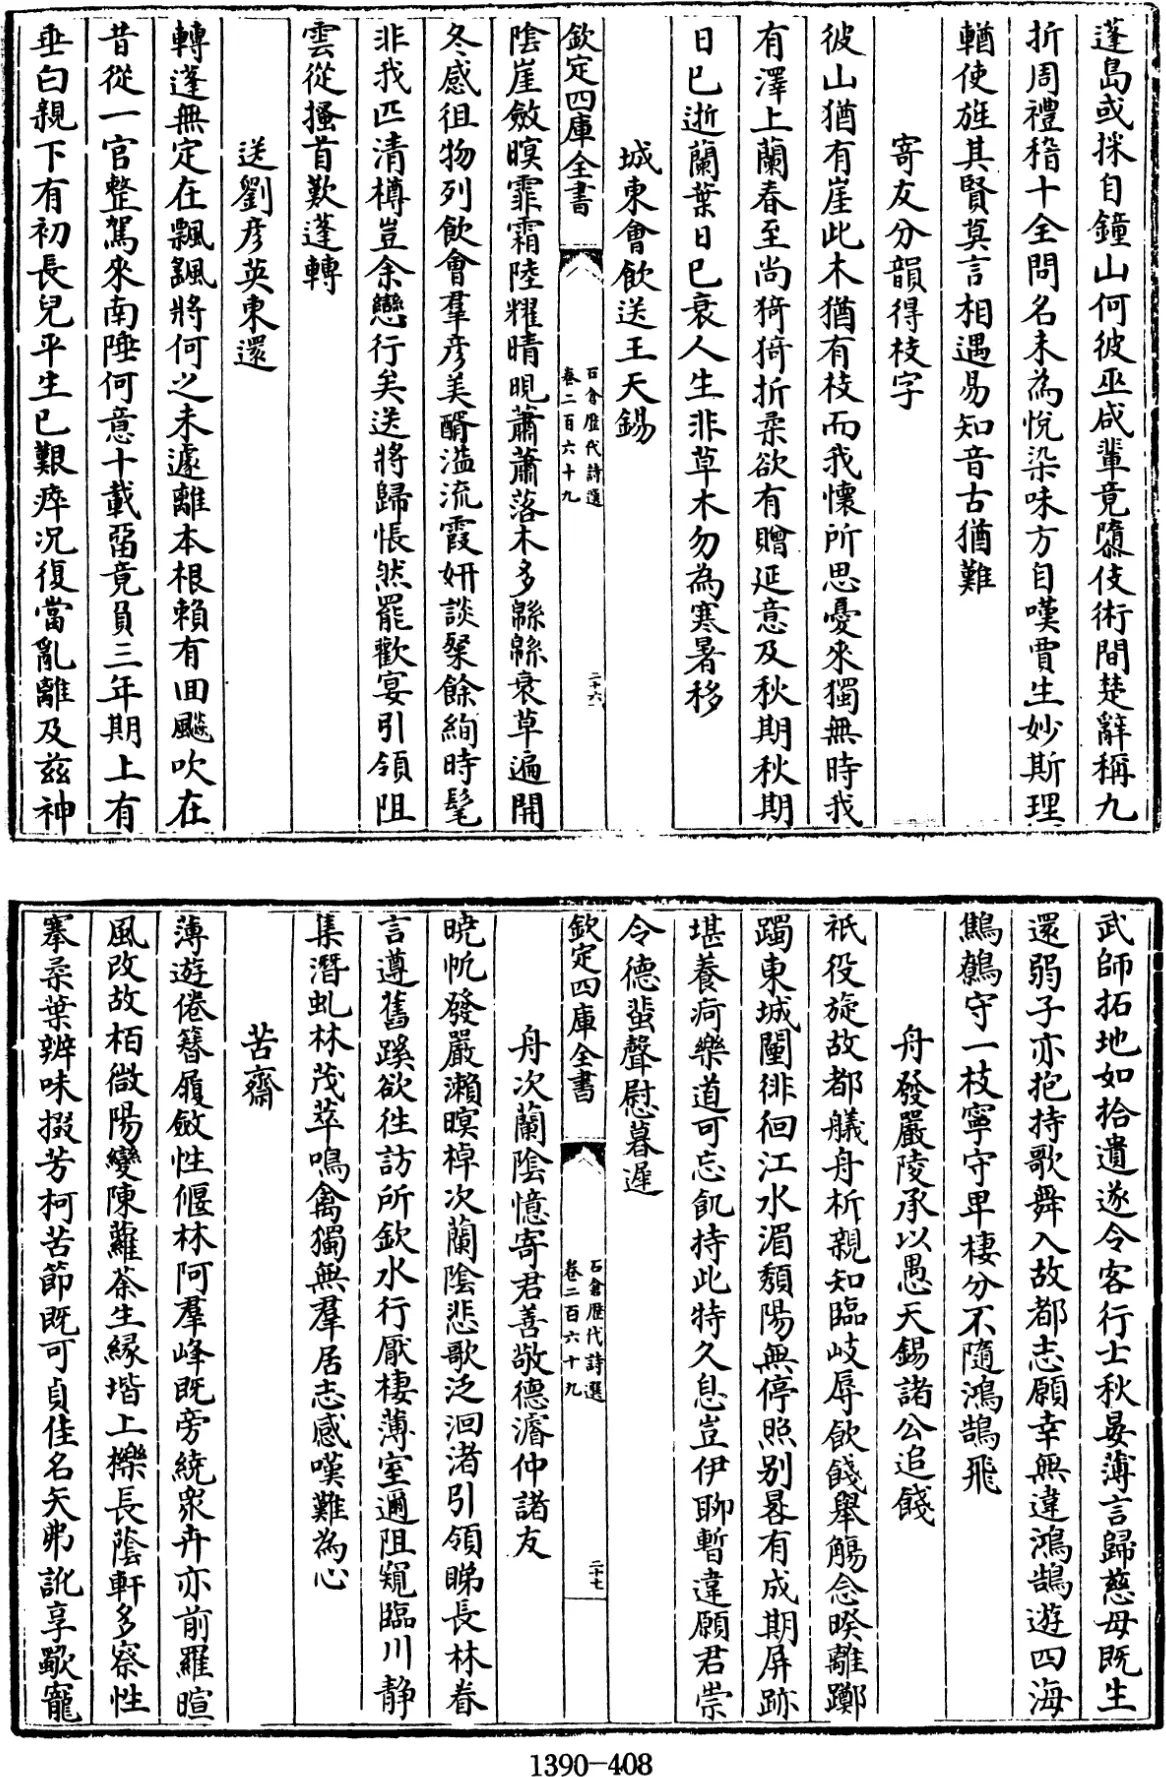 蓬島或採自鐘山何彼巫咸輩竟隱伎術間楚辭稱九
折周禮稽十全問名未為悅染味方自嘆賈生妙斯理
輶使旌其賢莫言相遇易知音古猶難
寄友分韻得枝字
彼山猶有崖此木猶有枝而我懷所思憂來獨無時我
有澤上蘭春至尚猗猗折柔欲有贈延意及秋期秋期
日已逝蘭葉日已衰人生非草木勿為寒暑移
城東會飲送王天錫
欽定四庫全書
石倉歷代詩選
卷二百六十九
二十六
陰崖斂暝霏霜陸耀晴晛蕭蕭落木多緜緜衰草遍開
冬感徂物列飲會羣彦美醑溢流霞妍談粲餘絢時髦
非我匹清樽豈余戀行矣送將歸悵然罷歡宴引領阻
雲從搔首歎蓬轉
送劉彦英東還
轉蓬無定在飄颻將何之未遽離本根賴有回飈吹在
昔從一官整駕來南陲何意十載留竟負三年期上有
垂白親下有初長兒平生已艱瘁况復當亂離及兹神
武師拓地如拾遺遂令客行士秋晏薄言歸慈母既生
還弱子亦抱持歌舞入故都志願幸無違鴻鵠遊四海
鷦鷯守一枝寧守卑棲分不隨鴻鵠飛
舟發嚴陵承以愚天錫諸公追餞
祇役旋故都艤舟析親知臨岐辱飲餞舉觴念暌離躑
躅東城闉徘徊江水湄頽陽無停照别晷有成期屏跡
堪養疴樂道可忘飢持此特久息豈伊聊暫違願君崇
令德蜚聲慰暮遲
欽定四庫全書
石倉歷代詩選
卷二百六十九
二十七
舟次蘭陰憶寄君善敬德濬仲諸友
曉帆發嚴瀨暝棹次蘭陰悲歌泛洄渚引領睇長林眷
言遵舊蹊欲徃訪所欽水行厭棲薄室邇阻窺臨川静
集潛虬林茂萃鳴禽獨無羣居志感嘆難為心
苦齋
薄遊倦簪履斂性偃林阿羣峰既旁繞衆卉亦前羅暄
風改故栢微陽變陳蘿荼生縁堦上櫟長蔭軒多察性
搴柔葉辨味掇芳柯苦節既可貞佳名矢弗訛享歜寵
1390-408